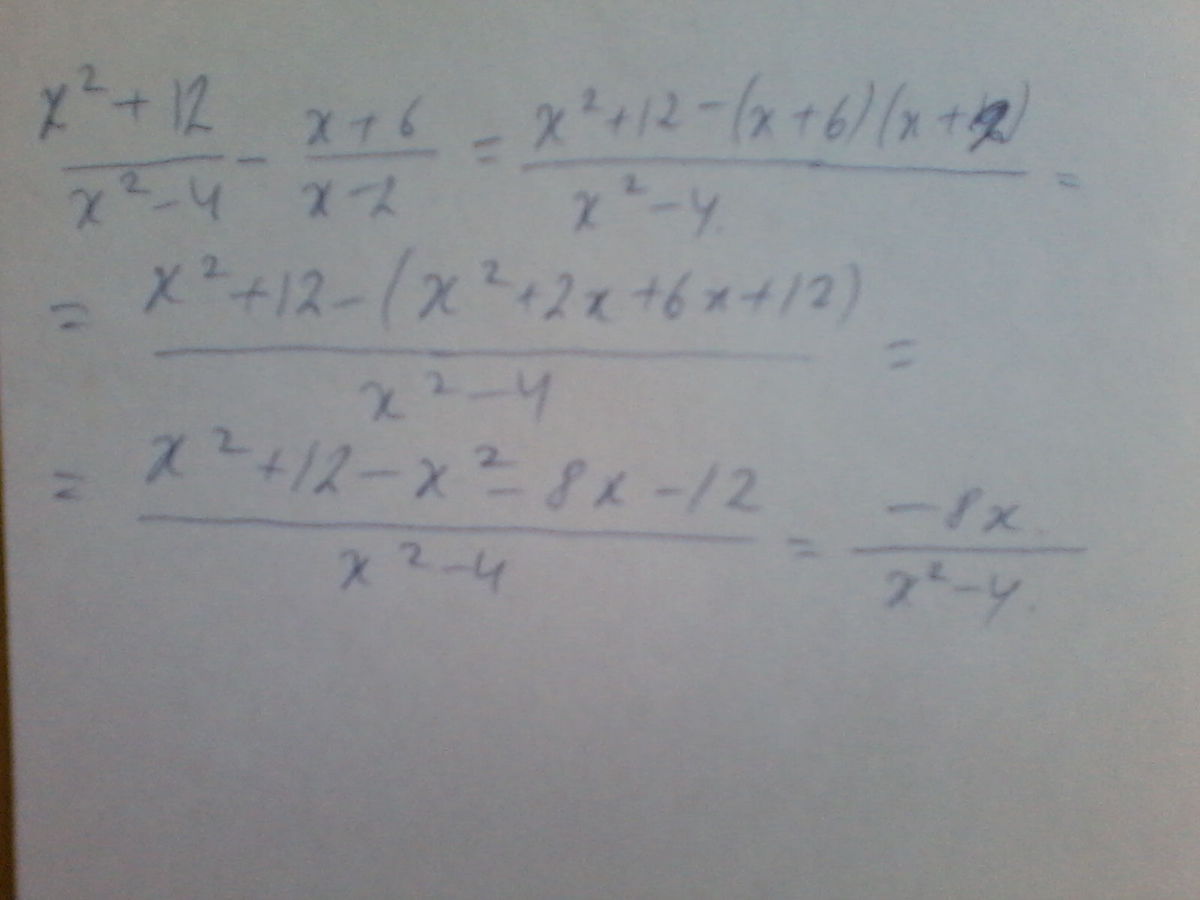 (x²+12)/(x²-4) - (x+6)/(x-2) = (x²+12-(x+6)(x+2))/(x²-4) =
= (x²+12-(x²+2x+6x+12))/(x²-4) =
= (x²+12-x²-8x-12)/(x²-4) = (-8x)/(x²-4).